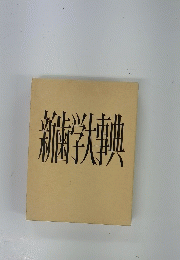 新歯学大事典